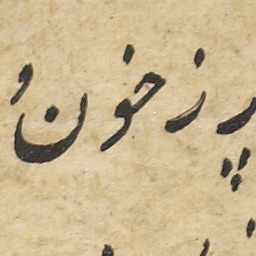 پر ز خون